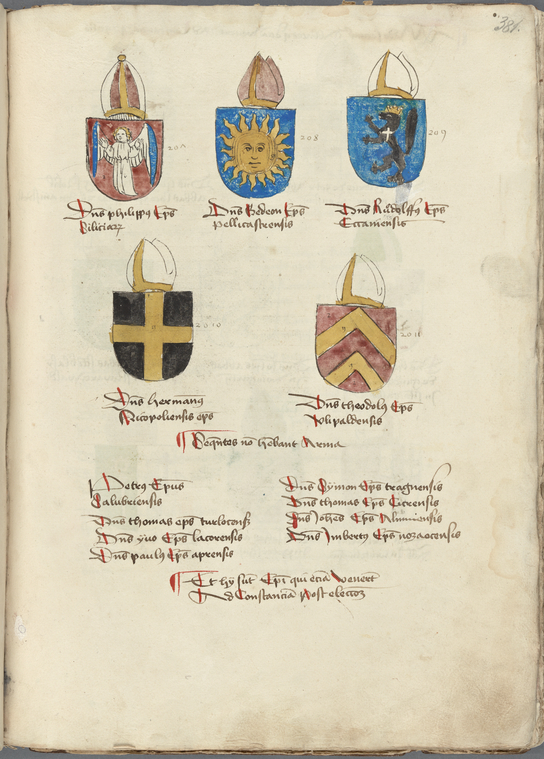 381.
207
208
209
Dns philippꝰ Eps
Siliciaꝝ
Dns Gedeon Eps
pellicastrensis
Dns Rudolffꝰ Eps
Ciraniensis
2010
2011
Dns hermanꝰ
Nicopoliensis eps
Dns theodolꝰ Eps
olipaldensis
Seqntes nō hēbant Arma
Petrꝰ Epus
Salubriensis
Dns thomas eps turlocensis
Dns yuo Eps lacorensis
Dns paulꝰ Eps aprensis
Dns Symon Eps traguensis
Dns thomas Eps Cicrensis
Dns Johēs Eps
Dns Imbertꝰ Eps nozaocensis
Et hy sūt Epi qui eciā venert
Ad Constanciā post eleccoꝫ